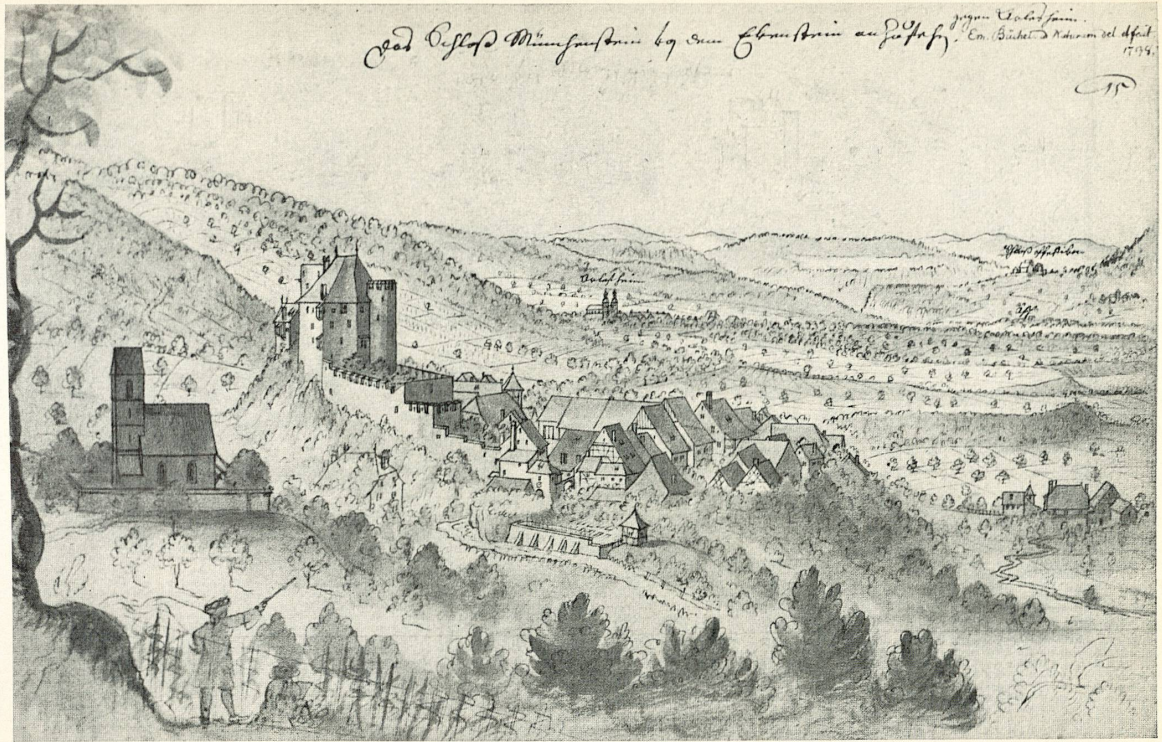 Das Schloß Münchenstein by dem Ebenstein anzusehen.
gegen Arlesheim.
Em. Büchel ad Naturam del. et fecit
1738.
15
Arlesheim